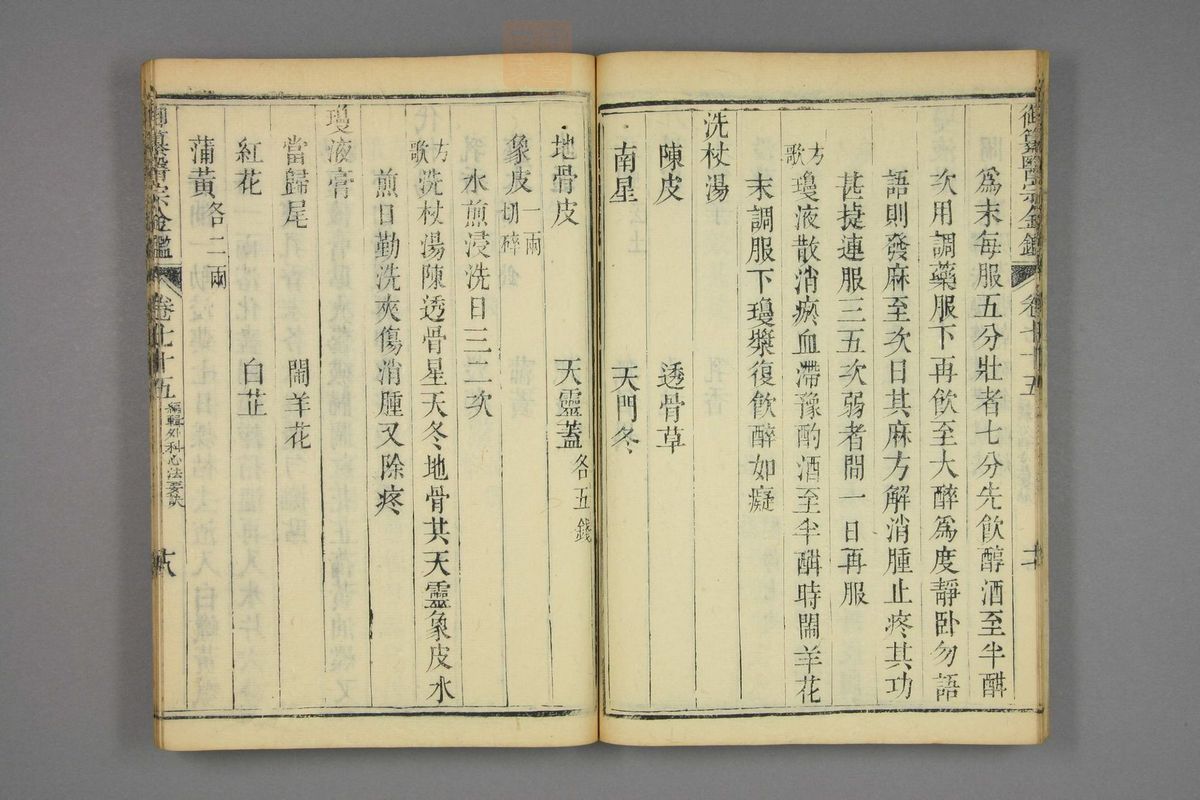 御纂醫宗金鑑 卷七十五
為末每服五分壯者七分先飲醇酒至半酣
次用調藥服下再飲至大醉為度靜臥勿語
語則發麻至次日其麻方解消腫止疼其功
甚捷連服三五次弱者間一日再服
方歌 瓊液散消瘀血滯豫酌酒至半酣時鬧羊花
末調服下瓊漿復飲醉如癡
洗杖湯
陳皮 透骨草
南星 天門冬
地骨皮 天靈蓋各五錢
象皮一兩切碎
水煎浸洗日三二次
方歌 洗杖湯陳透骨星天冬地骨共天靈象皮水
煎日勤洗夾傷消腫又除疼
瓊液膏
當歸尾 鬧羊花
紅花 白芷
蒲黃各二兩
御纂醫宗金鑑 卷七十五 編輯外科心法要訣 十八